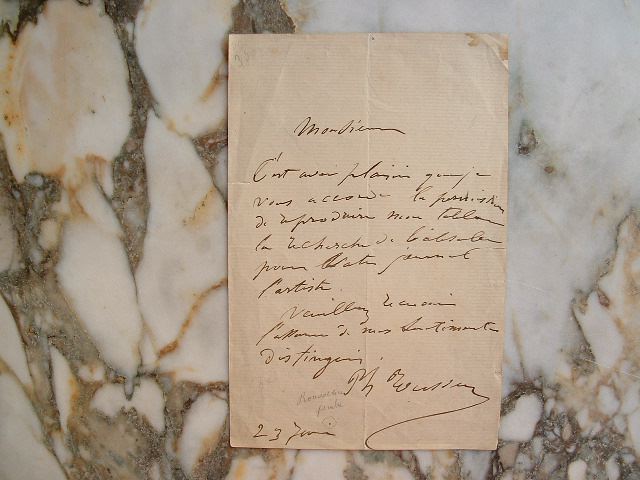 Monsieur
C'est avec plaisir que je
vous accorde la permission
de reproduire mon tableau
la recherche de l'absolu
pour votre journal
l'artiste.
Veuillez recevoir
l'assurance de mes sentiments
distingués.
Ph Rousseau
Rousseau
peintre
23 Juin